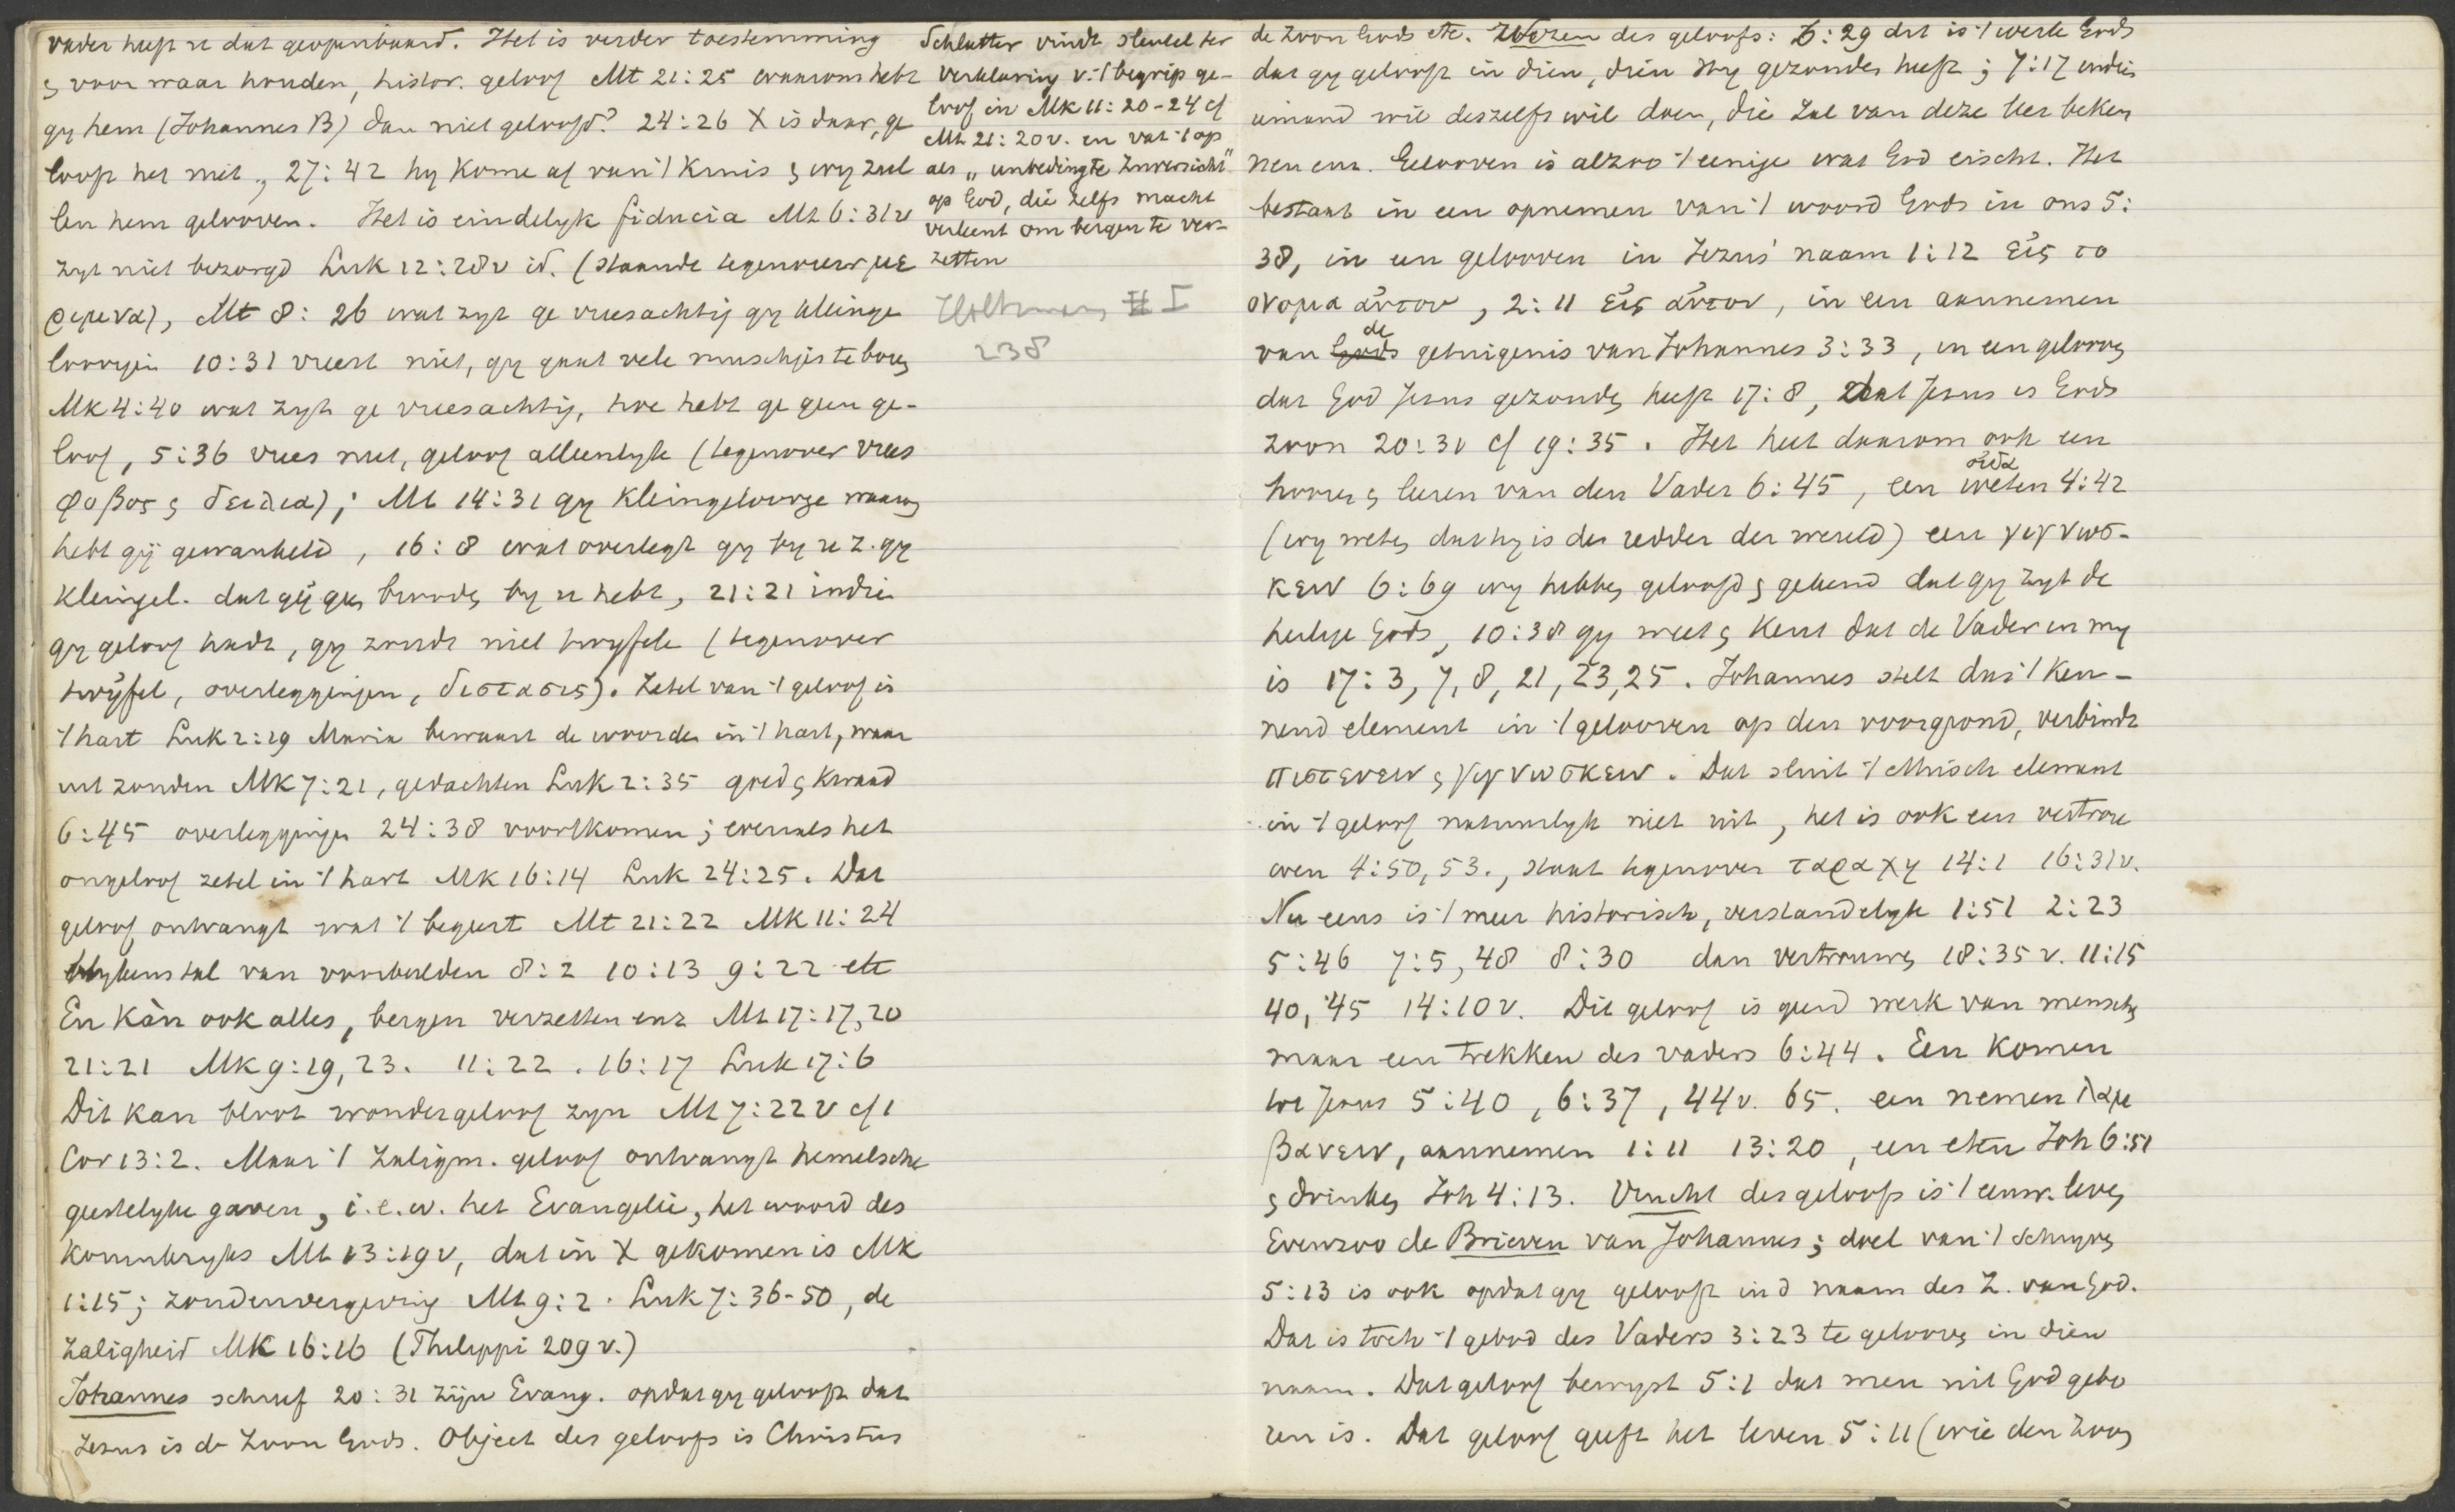 vader heeft u dat geopenbaard. Het is verder toestemming
& voor waar houden, histor. geloof Mt 21:25 waarom hebt
gy hem (Johannes B) dan niet geloofd? 24:26 X is daar, ge
looft het niet, 27:42 hy kome af van 't kruis & wy zul
len hem gelooven. Het is eindelyk fiducia Mt 6:31v
zyt niet bezorgd Luk 12:28v id. (staande tegenover με
ριμνα), Mt 8:26 wat zyt ge vreesachtig gy kleinge
loovigen 10:31 vreest niet, gy gaat vele muschjes te boven
Mk 4:40 wat zyt ge vreesachtig, hoe hebt ge geen ge-
loof, 5:36 vrees niet, geloof alleenlyk (tegenover vrees
φοβος & δειλια); Mt 14:31 gy kleingeloovige waarom
hebt gij gewankeld, 16:8 wat overlegt gy by u z. gy
kleingel. dat gij geen brooden by u hebt, 21:21 indien
gy geloof hadt, gy zoudt niet twyfele (tegenover
twijfel, overleggingen, διστασις). Zetel van 't geloof is
't hart Luk 2:19 Maria bewaart de woorden in 't hart, waar
uit zonden Mk 7:21, gedachten Luk 2:35 goed & kwaad
6:45 overleggingen 24:38 voortkomen; evenals het
ongeloof zetel in 't hart Mk 16:14 Luk 24:25. Dat
geloof ontvangt wat 't begeert Mt 21:22 Mk 11:24
blykens tal van voorbeelden 8:2 10:13 9:22 etc
En kàn ook alles, bergen verzetten enz Mt 17:17,20
21:21 Mk 9:19, 23. 11:22. 16:17 Luk 17:6
Dit kan bloot wondergeloof zyn Mt 7:22v cf 1
Cor 13:2. Maar 't zaligm. geloof ontvangt hemelsche
geestelyke gaven, i.e.w. het Evangelie, het woord des
Koninkryks Mt 13:19v, dat in X gekomen is Mk
1:15; zondenvergeving Mt 9:2. Luk 7:36-50, de
zaligheid Mk 16:16 (Philippi 209 v.)
Johannes schreef 20:31 zijn Evang. opdat gy gelooft dat
Jezus is de Zoon Gods. Object des geloofs is Christus
Schlatter vindt sleutel ter
verklaring v. 't begrip ge-
loof in Mk 11:20-24 cf
Mt 21:20v. en vat 't op
als „unbedingte Zuversicht"
op God, die zelfs macht
verleent om bergen te ver-
zetten
Holtzmann I
238
de Zoon Gods etc. Wezen des geloofs: 6:29 dit is 't werk Gods
dat gy gelooft in dien, dien Hy gezonden heeft; 7:17 indien
iemand wil deszelfs wil doen, die zal van deze leer beken
nen enz. Gelooven is alzoo 't eenige wat God eischt. Het
bestaat in een opnemen van 't woord Gods in ons 5:
38, in een gelooven in Jezus' naam 1:12 εἰς το
ονομα ἀυτου, 2:11 εἰς ἀυτον, in een aannemen
van de getuigenis van Johannes 3:33, in een gelooven
dat God Jesus gezonden heeft 17:8, dat Jesus is Gods
zoon 20:31 cf 19:35. Het heet daarom ook een
hooren & leeren van den Vader 6:45, een weten οἰδα 4:42
(wy weten dat hy is de redder der wereld) een γιγνωσ-
κειν 6:69 wy hebben geloofd & gekend dat gy zyt de
heilige Gods, 10:38 gy weet & kent dat de Vader in my
is 17:3, 7, 8, 21, 23, 25. Johannes stelt dus 't ken-
nend element in 't gelooven op den voorgrond, verbindt
πιστευειν & γιγνωσκειν. Dat sluit 't ethisch element
in 't geloof natuurlyk niet uit, het is ook een vertrou
wen 4:50, 53., staat tegenover ταραχη 14:1 16:31v.
Nu eens is 't meer historisch, verstandelyk 1:51 2:23
5:46 7:5, 48 8:30 dan vertrouwen 18:35 v. 11:15
40, 45 14:10v. Dit geloof is geen werk van menschen
maar een trekken des vaders 6:44. Een komen
tot Jezus 5:40, 6:37, 44v. 65. een nemen λαμ
βανειν, aannemen 1:11 13:20, een eten Joh 6:51
& drinken Joh 4:13. Vrucht des geloofs is 't eeuw. leven
Evenzoo de Brieven van Johannes; doel van 't schryven
5:13 is ook opdat gy gelooft in d naam des Z. van God.
Dat is toch 't gebod des Vaders 3:23 te gelooven in dien
naam. Dat geloof bewyst 5:1 dat men uit God gebo
ren is. Dat geloof geeft het leven 5:11 (wie den Zoon